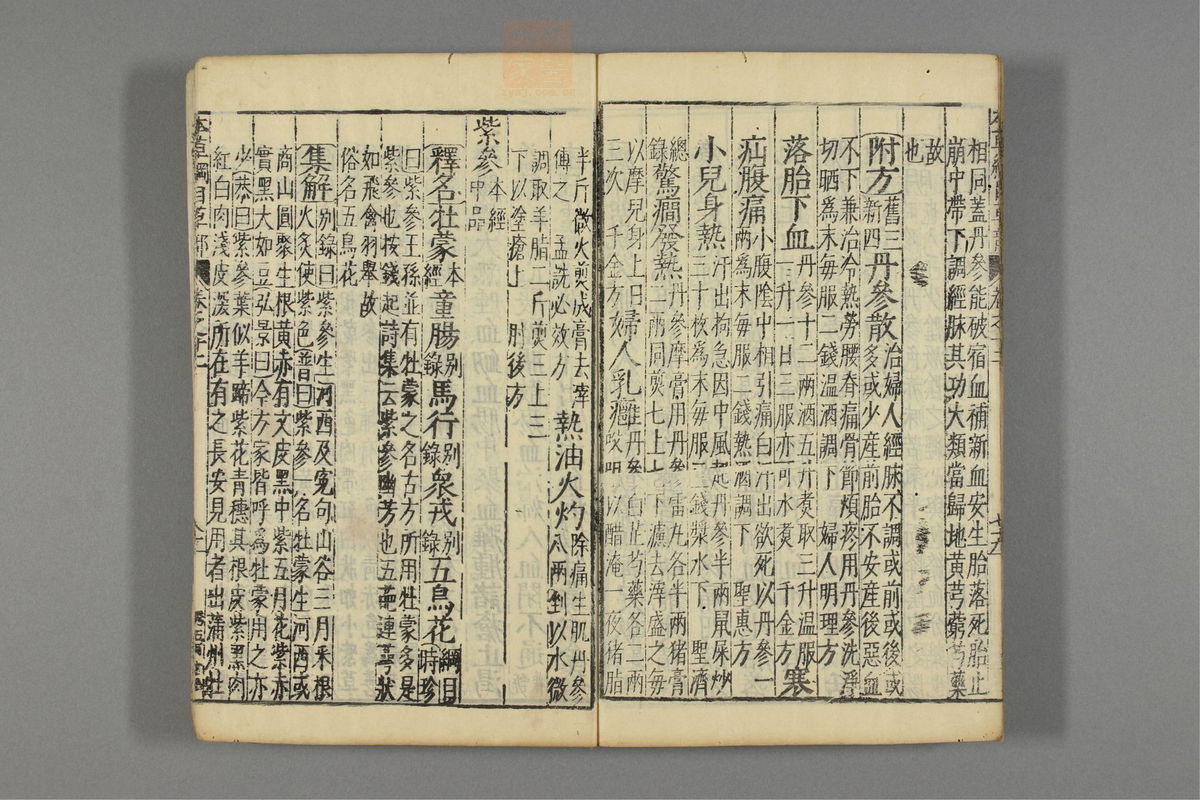 相同蓋丹參能破宿血補新血安生胎落死胎止
崩中帶下調經脉其功大類當歸地黄芎藭芍藥
故
也
附方舊三新四丹參散治婦人經脉不調或前或後或
多或少産前胎不安産後惡血
不下兼治冷熱勞腰脊痛骨節煩疼用丹參洗淨
切晒爲末每服二錢温酒調下 婦人明理方
落胎下血丹參十二兩酒五升煮取三升温服
一升一日三服亦可水煮 千金方寒
疝腹痛小腹陰中相引痛白汗出欲死以丹參一
兩爲末每服二錢熱酒調下 聖惠方
小兒身熱汗出拘急因中風起丹參半兩鼠屎炒
三十枚爲末每服三錢漿水下 聖濟
總
錄驚癇發熱丹參摩膏用丹參雷丸各半兩猪膏
二兩同煎七上七下濾去滓盛之每
以摩兒身上日
三次 千金方婦人乳癰丹參白芷芍藥各二兩
㕮咀以醋淹一夜猪脂
半斤微火煎成膏去滓
傅之 孟詵必效方熱油火灼除痛生肌丹參
八兩剉以水微
調取羊脂二斤煎三上三
下以塗瘡上 肘後方
紫參本經中品
釋名牡蒙本經童腸别錄馬行别錄衆戎别錄五鳥花綱目時珍
曰紫參王孫並有牡蒙之名古方所用牡蒙多是
紫參也按錢起詩集云紫參幽芳也五葩連萼狀
如飛禽羽舉故
俗名五鳥花
集解别錄曰紫參生河西及冤句山谷三月采根
火炙使紫色普曰紫參一名牡蒙生河西或
商山圓聚生根黄赤有文皮黑中紫五月花紫赤
實黑大如豆弘景曰今方家皆呼爲牡蒙用之亦
少恭曰紫參葉似羊蹄紫花青穗其根皮紫黑肉
紅白肉淺皮深所在有之長安見用者出蒲州牡
本草綱目草部 卷之十二